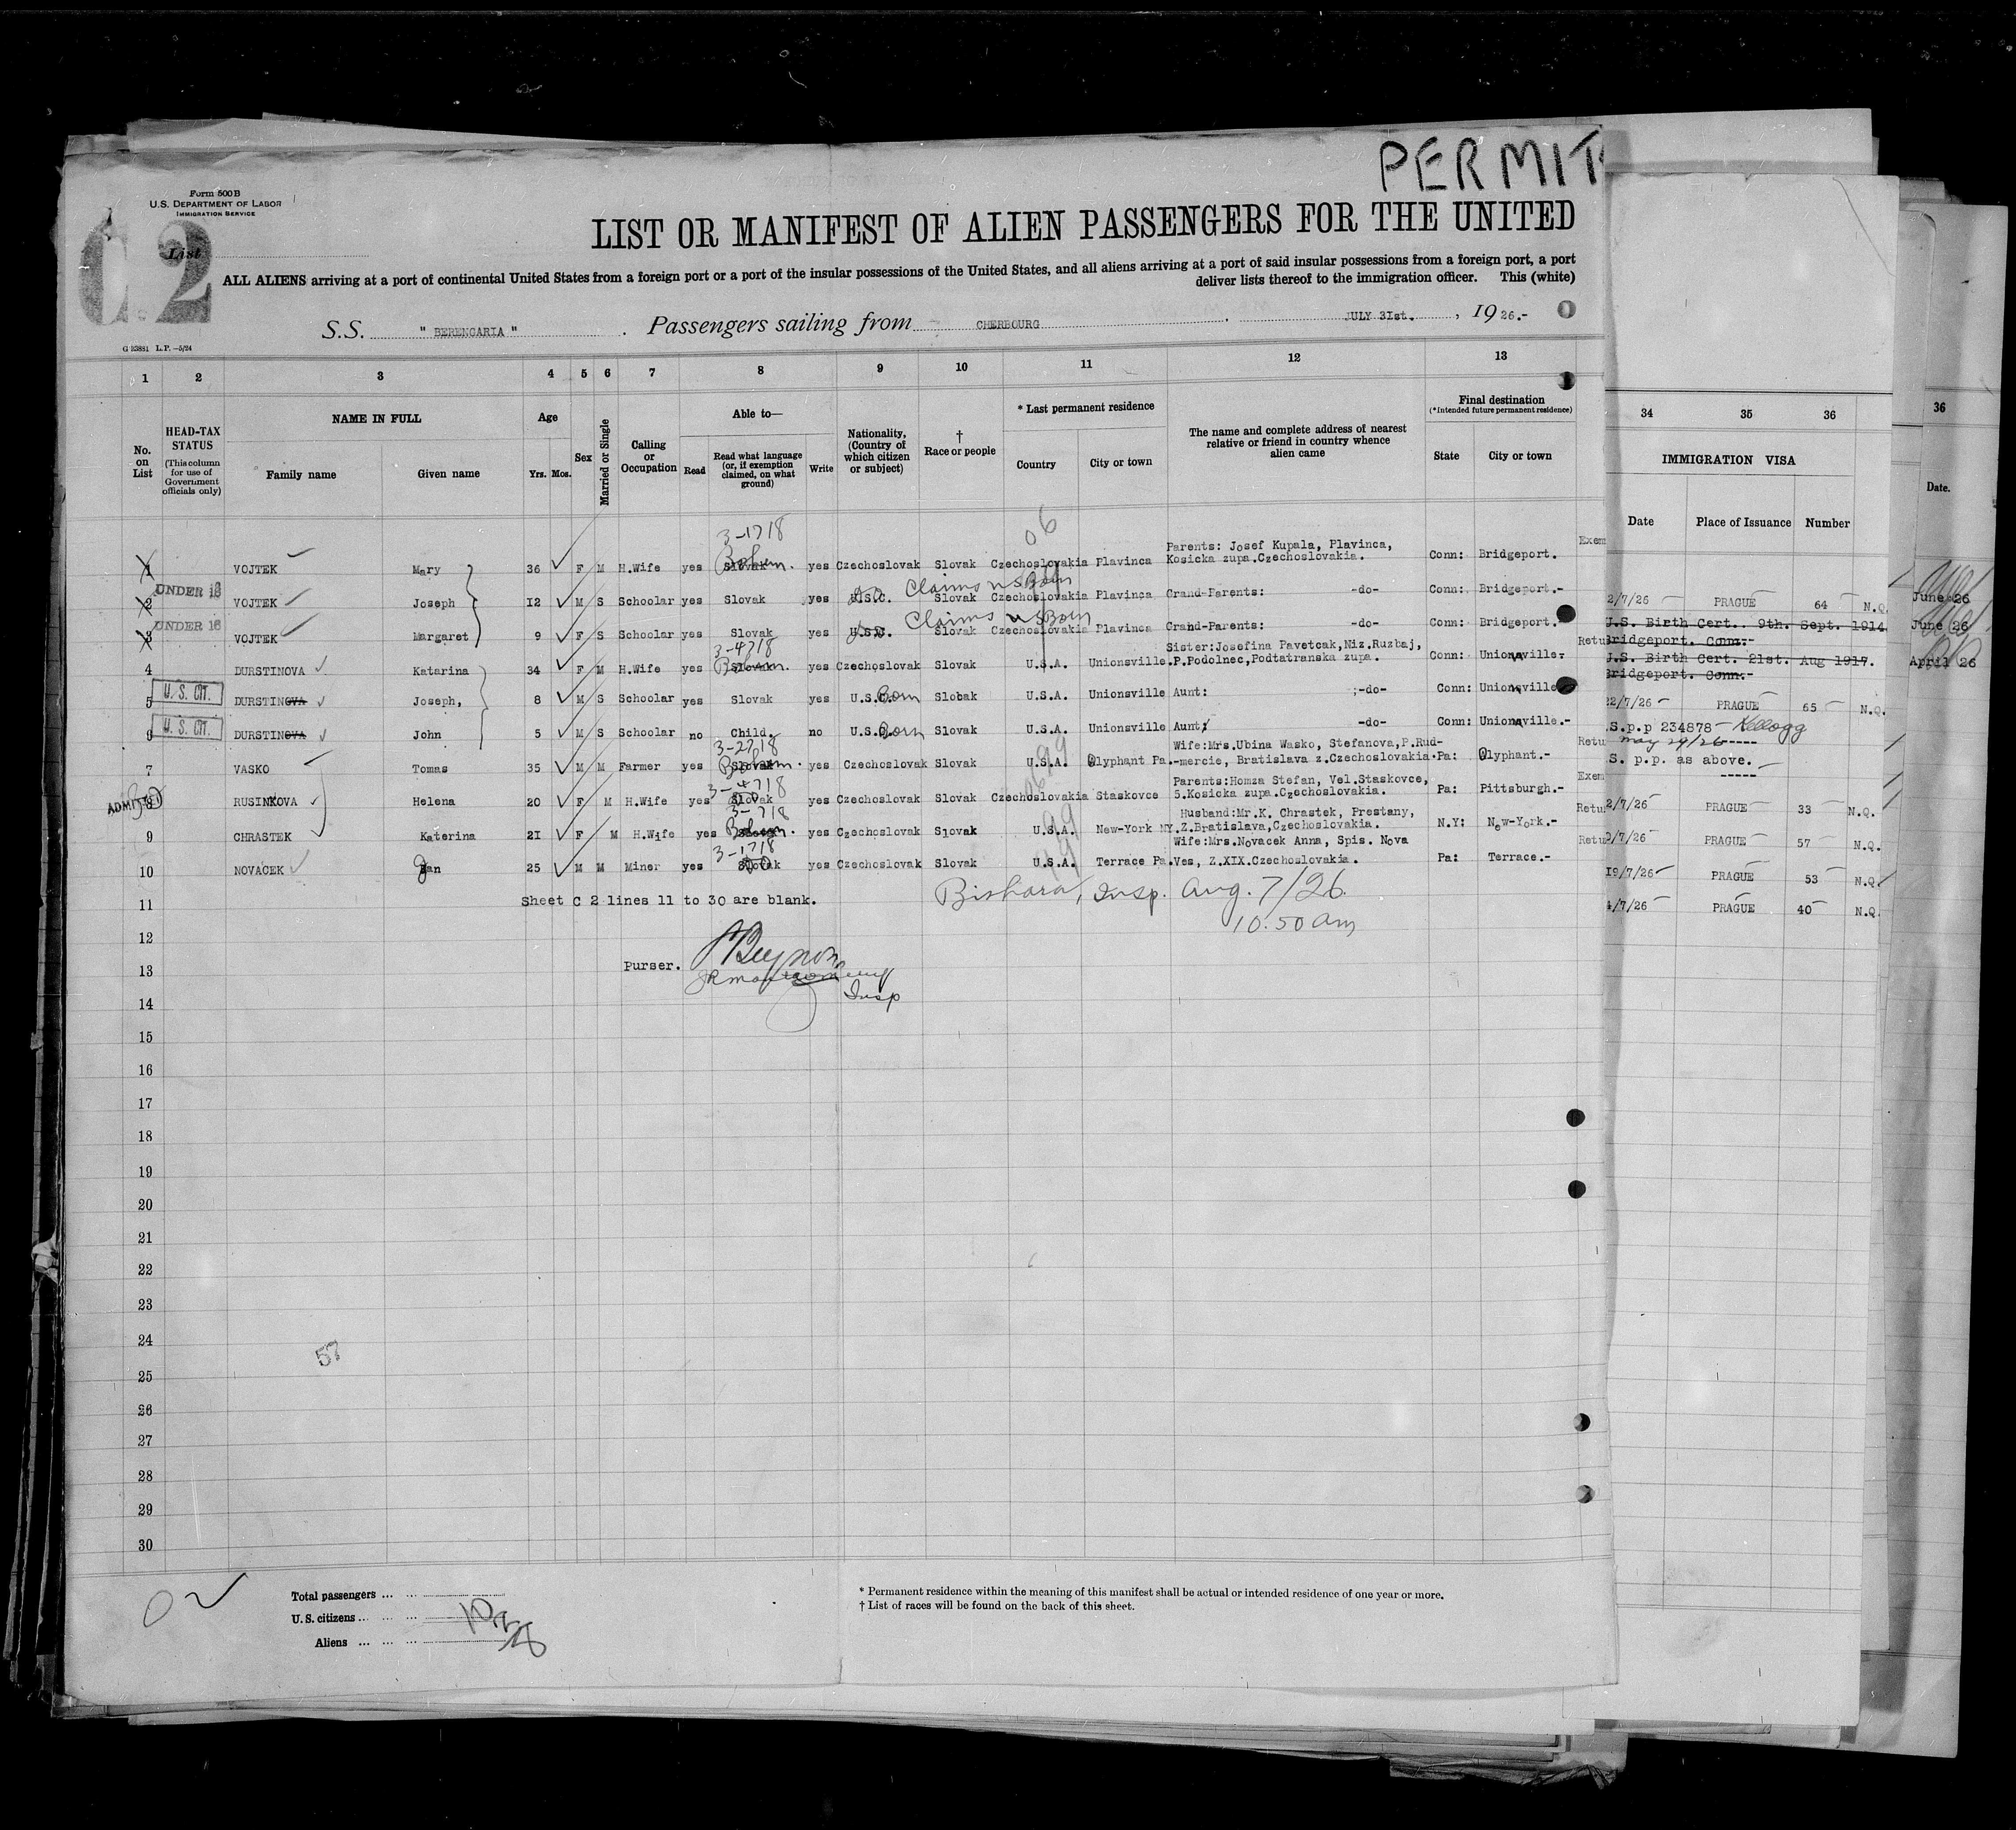 PERMIT
Form 500 B
U.S. DEPARTMENT OF LABOR
IMMIGRATION SERVICE
C.2
List
LIST OR MANIFEST OF ALIEN PASSENGERS FOR THE UNITED
ALL ALIENS arriving at a port of continental United States from a foreign port or a port of the insular possessions of the United States, and all aliens arriving at a port of said insular possessions from a foreign port, a port
deliver lists thereof to the immigration officer. This (white)
S.S. " BERENGARIA " . Passengers sailing from CHERBOURG . JULY 31st. , 19 26.-
G 23881 L.P. —5/24
1 2 3 4 5 6 7 8 9 10 11 12 13
34 35 36
36
No. on List
HEAD-TAX STATUS
(This column for use of Government officials only)
NAME IN FULL
Family name Given name
Age
Yrs. Mos.
Sex
Married or Single
Calling or Occupation
Able to—
Read
Read what language (or, if exemption claimed, on what ground)
Write
Nationality, (Country of which citizen or subject)
† Race or people
* Last permanent residence
Country City or town
The name and complete address of nearest relative or friend in country whence alien came
Final destination
(*Intended future permanent residence)
State City or town
IMMIGRATION VISA
Date Place of Issuance Number
Date.
3-1718
06
Parents: Josef Kupala, Plavinca, Exem
1 VOJTEK Mary 36 F M H.Wife yes Slovak Bohem. yes Czechoslovak Slovak Czechoslovakia Plavinca Kosicka zupa.Czechoslovakia. Conn: Bridgeport.
UNDER 16
Claims US Born
2 VOJTEK Joseph 12 M S Schoolar yes Slovak yes U.S.C. Slovak Czechoslovakia Plavinca Grand-Parents: -do- Conn: Bridgeport.-
UNDER 16
Claims US Born
3 VOJTEK Margaret 9 F S Schoolar yes Slovak yes U.S.C. Slovak Czechoslovakia Plavinca Grand-Parents: -do- Conn: Bridgeport.
3-4718
Sister:Josefina Pavetcak,Niz.Ruzbaj, Retu
4 DURSTINOVA Katarina 34 F M H.Wife yes Slovak yes Czechoslovak Slovak U.S.A. Unionsville.P.Podolnec,Podtatranska zupa. Conn: Unionville.
U. S. CIT.
5 DURSTINOVA Joseph, 8 M S Schoolar yes Slovak U.S. Born Slobak U.S.A. Unionsville Aunt: ;-do- Conn: Unionville
U. S. CIT.
6 DURSTINOVA John 5 M S Schoolar no Child. no U.S. Born Slovak U.S.A. Unionsville Aunt: -do- Conn: Unionville.-
3-2718
Wife:Mrs.Ubina Wasko, Stefanova,P.Rud- Retu
7 VASKO Tomas 35 M M Farmer yes Slovak yes Czechoslovak Slovak U.S.A. Olyphant Pa.-mercie, Bratislava z.Czechoslovakia. Pa: Olyphant.-
3-4718
Parents:Homza Stefan, Vel.Staskovce, Exem
ADMITTED
8 RUSINKOVA Helena 20 F M H.Wife yes Slovak yes Czechoslovak Slovak Czechoslovakia Staskovce 5.Kosicka zupa.Czechoslovakia. Pa: Pittsburgh.-
Husband:Mr.K. Chrastek, Prestany, Retu
9 CHRASTEK Katerina 21 F M H.Wife yes Bohem. yes Czechoslovak Slovak U.S.A. New-York NY.Z.Bratislava,Czechoslovakia. N.Y: New-York.-
3-1718
Wife:Mrs.Novacek Anna, Spis. Nova Retu
10 NOVACEK Jan 25 M M Miner yes Slovak yes Czechoslovak Slovak U.S.A. Terrace Pa.Ves, Z.XIX.Czechoslovakia. Pa: Terrace.-
2/7/26 PRAGUE 64 N.Q. June 26
U.S. Birth Cert. 9th. Sept. 1914 June 26
Bridgeport. Conn.-
U.S. Birth Cert. 21st. Aug 1917. April 26
Bridgeport. Conn.-
22/7/26 PRAGUE 65 N.Q.
.S.p.p 234878 Kellogg
May 29/26
.S. p.p. as above.
2/7/26 PRAGUE 33 N.Q.
/7/26 PRAGUE 57 N.Q.
19/7/26 PRAGUE 53 N.Q.
4/7/26 PRAGUE 40 N.Q.
11 Sheet C 2 lines 11 to 30 are blank. Bishara, Insp. Aug. 7/26.
10.50 am
12
13 Purser.
Insp
14
15
16
17
18
19
20
21
22
23
24
57
25
26
27
28
29
30
Total passengers ... ... 10
U. S. citizens ... ... ... 2
Aliens ... ... ... 8
* Permanent residence within the meaning of this manifest shall be actual or intended residence of one year or more.
† List of races will be found on the back of this sheet.